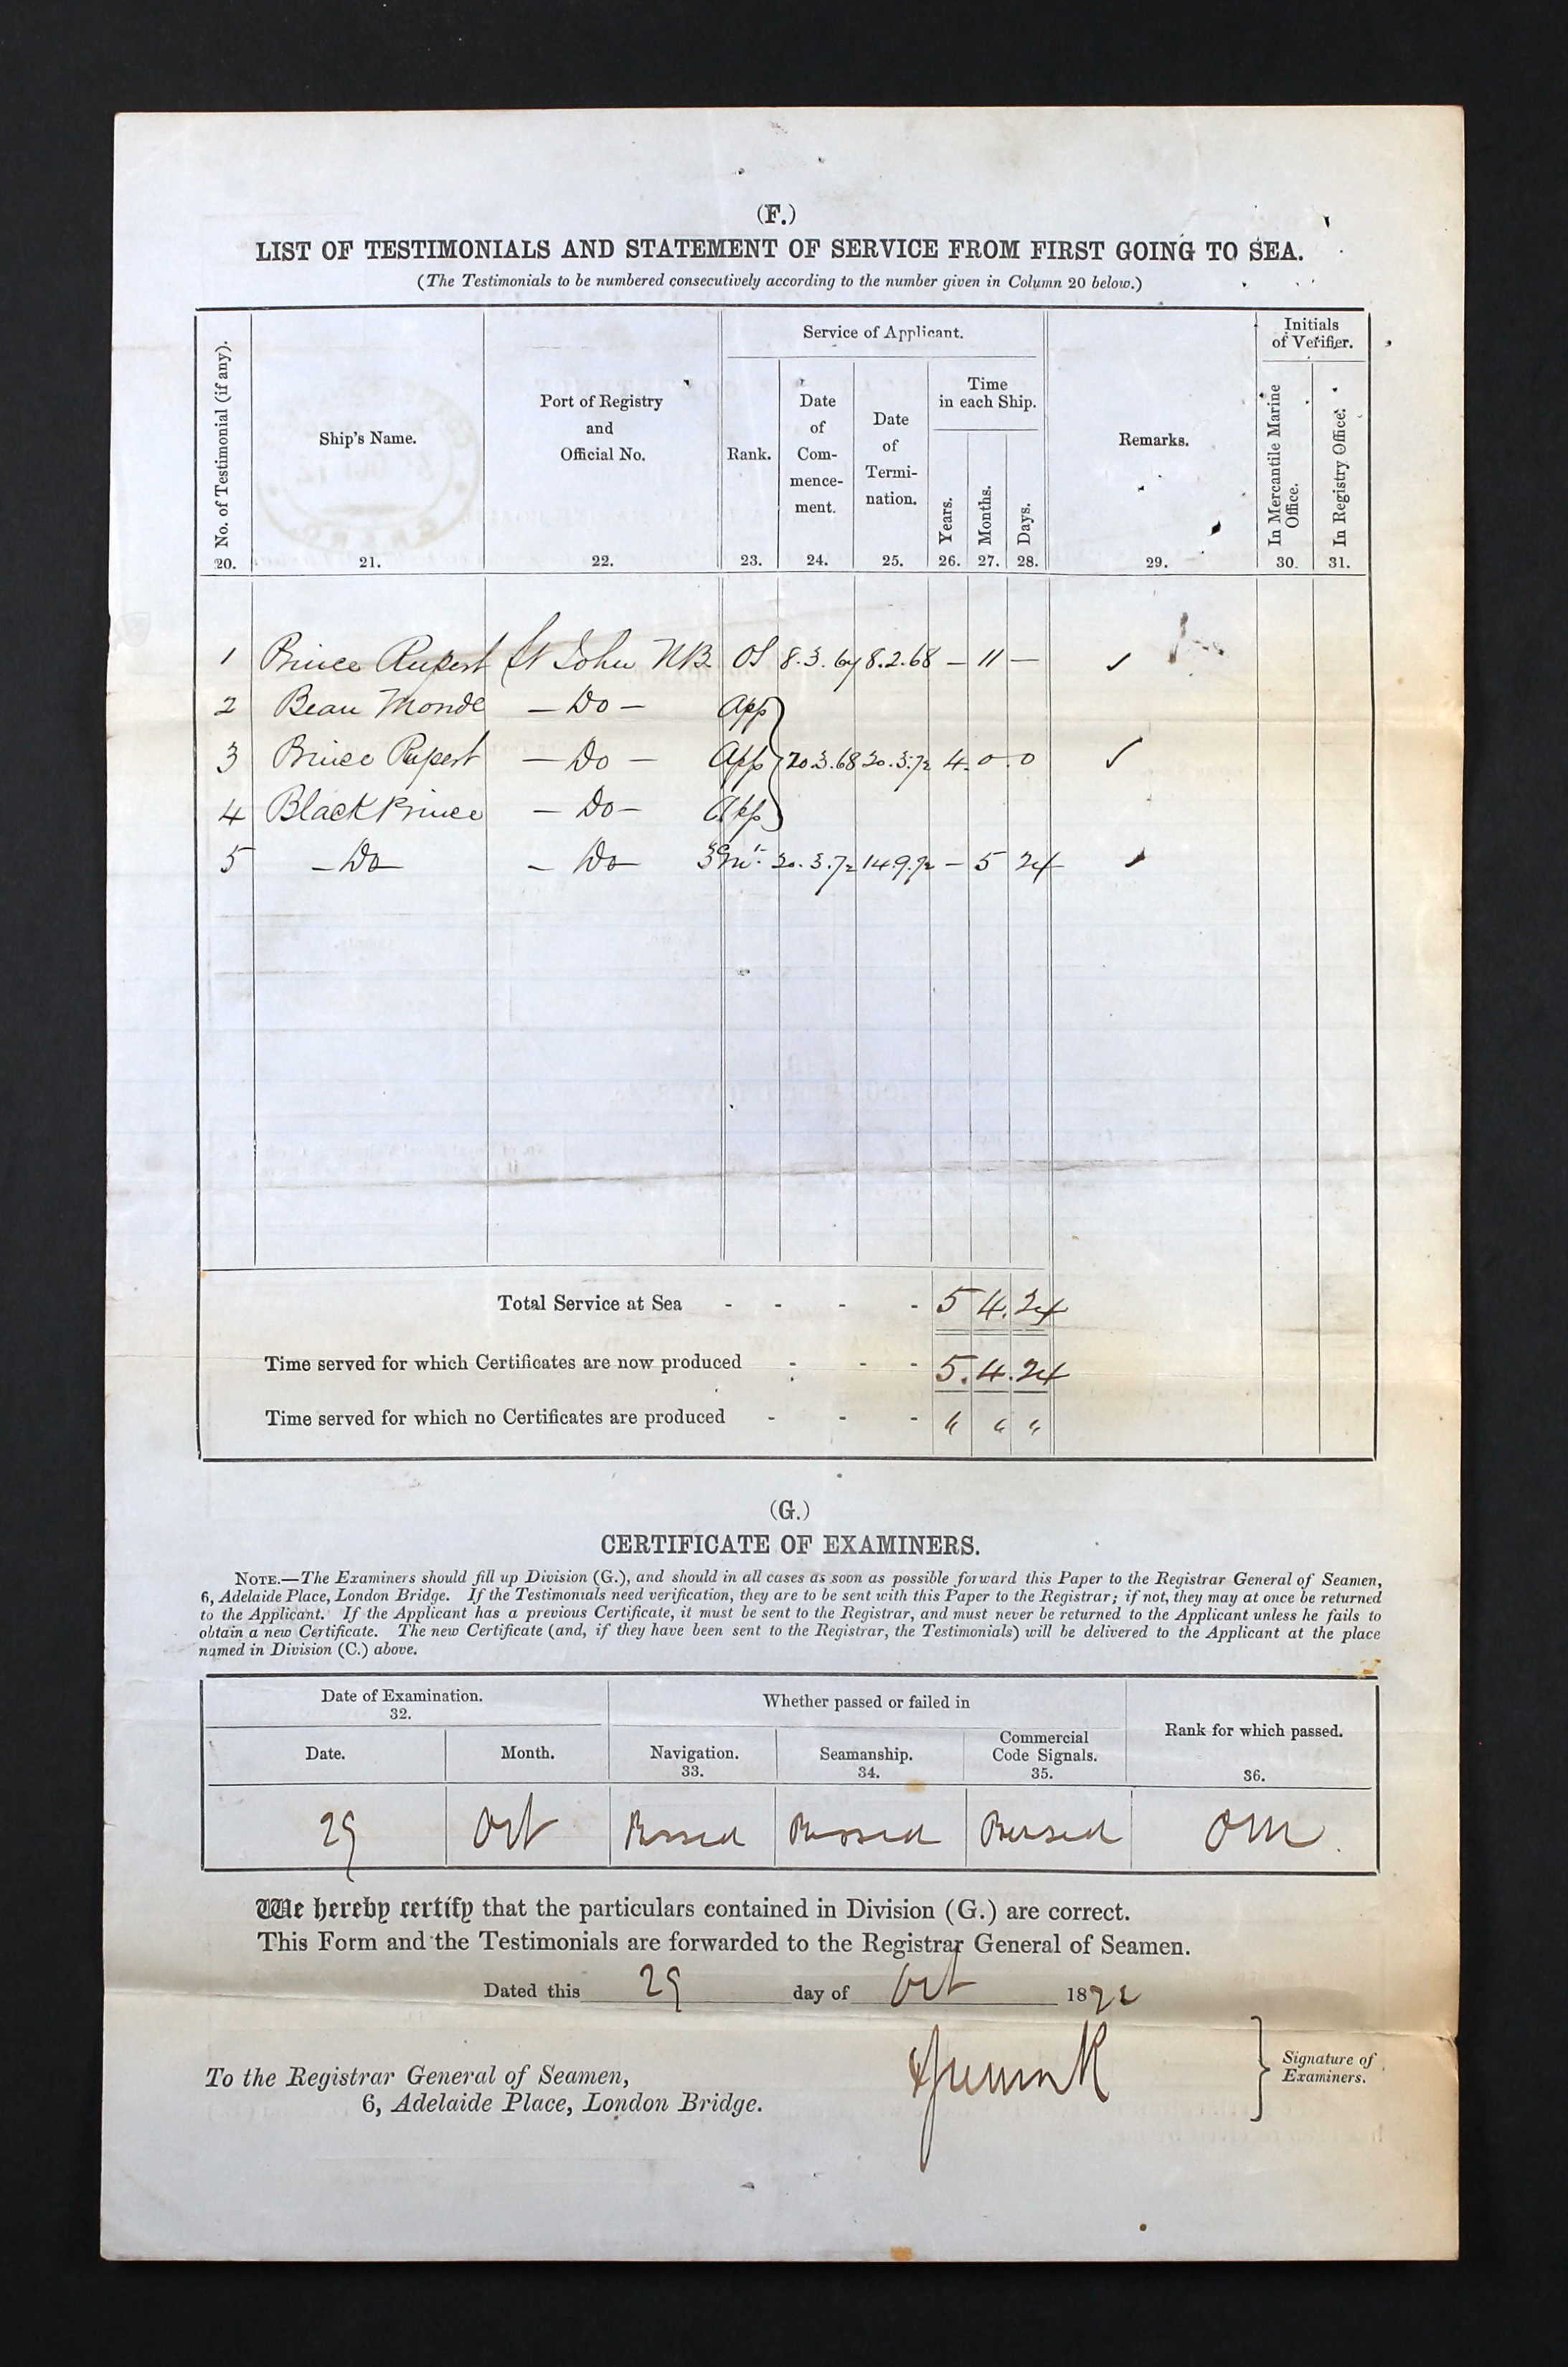 (F.)
LIST OF TESTIMONIALS AND STATEMENT OF SERVICE FROM FIRST GOING TO SEA.
(The Testimonials to be numbered consecutively according to the number given in Column 20 below.)
No. of Testimonial (if any). 20.
Ship's Name. 21.
Port of Registry and Official No. 22.
Service of Applicant.
Rank. 23.
Date of Commencement. 24.
Date of Termination. 25.
Time in each Ship.
Years. 26.
Months. 27.
Days. 28.
Remarks. 29.
Initials of Verifier.
In Mercantile Marine Office. 30.
In Registry Office. 31.
1 Prince Rupert St John NB OS 8.3.67 8.2.68 — 11 — ✓
2 Beau Monde — Do — App
3 Prince Rupert — Do — App 20.3.68 20.3.72 4 0 0 ✓
4 Black Prince — Do — App
5 — Do — — Do — 3 M 20.3.72 14 9.72 — 5 24 ✓
Total Service at Sea - - - - 5 4. 24
Time served for which Certificates are now produced - - - 5. 4. 24
Time served for which no Certificates are produced - - - " " "
(G.)
CERTIFICATE OF EXAMINERS.
NOTE.—The Examiners should fill up Division (G.), and should in all cases as soon as possible forward this Paper to the Registrar General of Seamen,
6, Adelaide Place, London Bridge. If the Testimonials need verification, they are to be sent with this Paper to the Registrar; if not, they may at once be returned
to the Applicant. If the Applicant has a previous Certificate, it must be sent to the Registrar, and must never be returned to the Applicant unless he fails to
obtain a new Certificate. The new Certificate (and, if they have been sent to the Registrar, the Testimonials) will be delivered to the Applicant at the place
named in Division (C.) above.
Date of Examination. 32.
Whether passed or failed in
Rank for which passed. 36.
Date.
Month.
Navigation. 33.
Seamanship. 34.
Commercial Code Signals. 35.
29 Oct Passed Passed Passed OM
We hereby certify that the particulars contained in Division (G.) are correct.
This Form and the Testimonials are forwarded to the Registrar General of Seamen.
Dated this 29 day of Oct 1872
To the Registrar General of Seamen,
6, Adelaide Place, London Bridge.
Signature of Examiners.